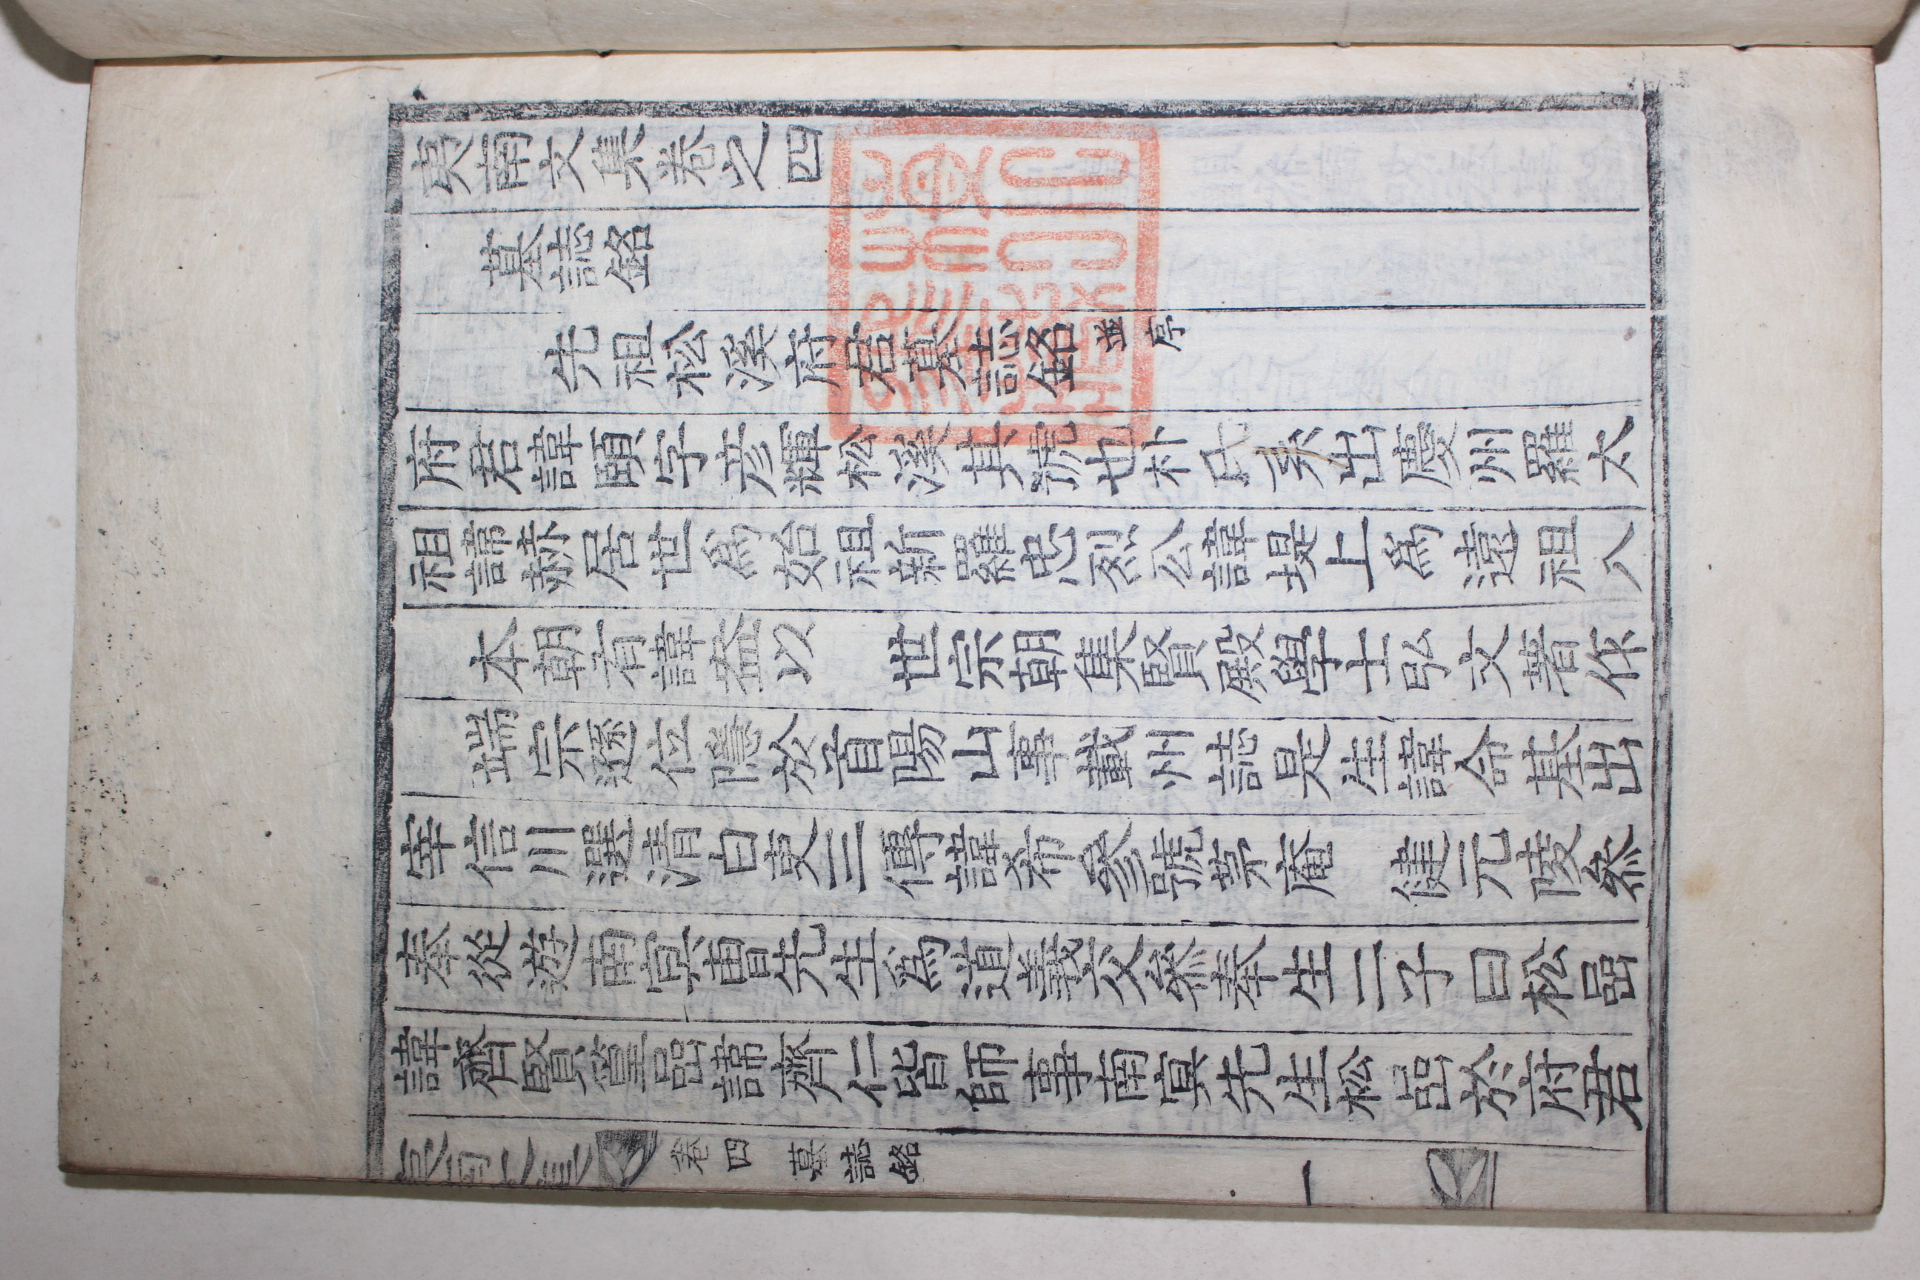 夷南文集卷之四
墓誌銘
先祖松溪府君墓誌銘並序
府君諱頤字彦輝松溪其號也朴氏系出慶州羅太
祖諱赫居世爲始祖新羅忠烈公諱堤上爲遠祖入
本朝有諱益以 世宗朝集賢殿學士弘文著作
端宗遜位隱於首陽山事載州誌是生諱命基出
宰信川選淸白吏三傳諱希參號茅庵 健元陵叅
奉從遊南冥曺先生爲道義交叅奉生二子曰松嵒
諱齊賢篁嵒諱齊仁皆師事南冥先生松嵒於府君
夷南文集 卷四 墓誌銘 一